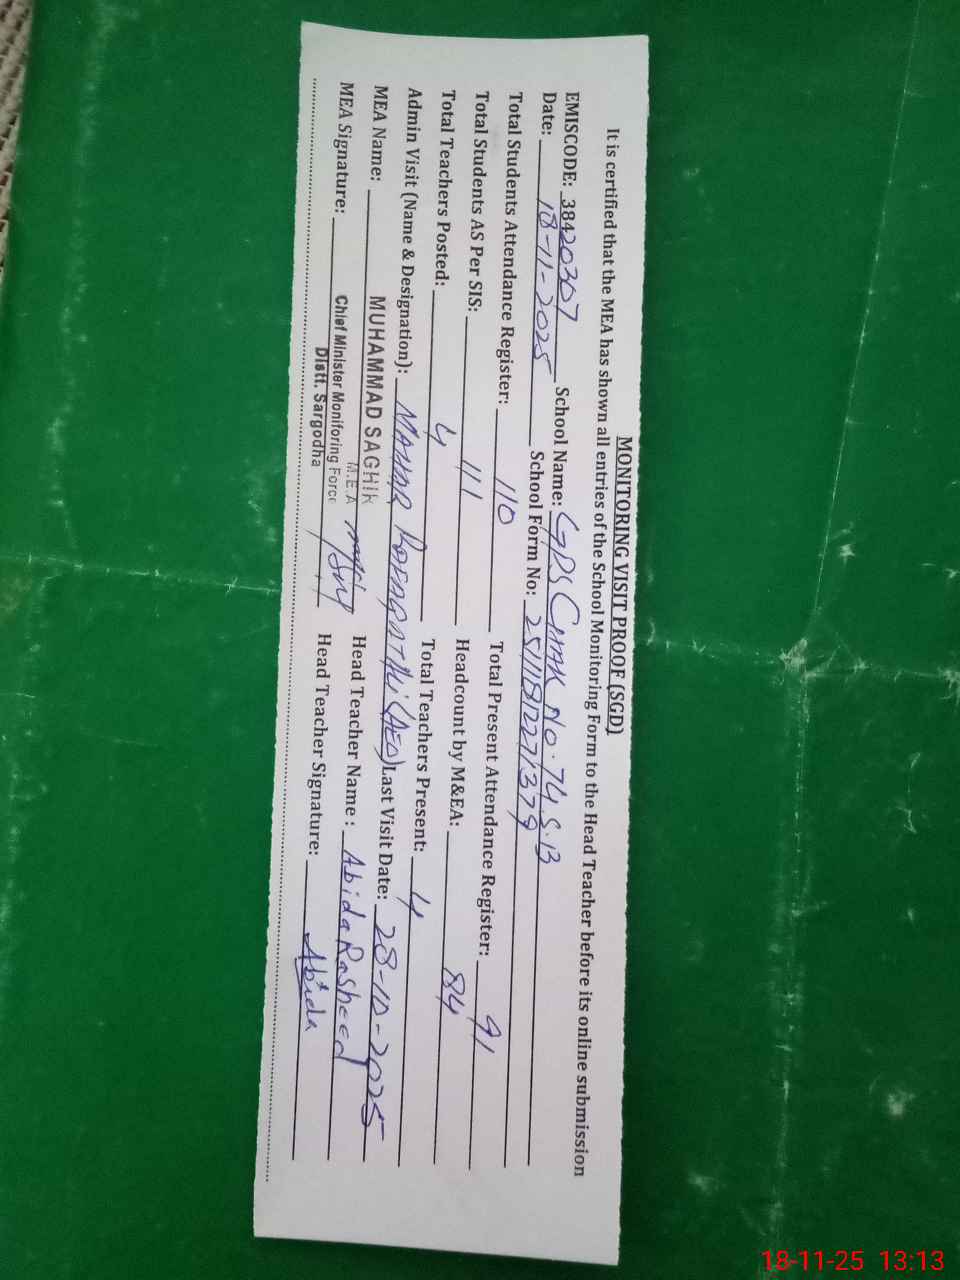 MONITORING VISIT PROOF (SGD)
It is certified that the MEA has shown all entries of the School Monitoring Form to the Head Teacher before its online submission
EMISCODE: 38420307 School Name: GPS Chak No. 74 S.B
Date: 18-11-2025 School Form No: 25111812271379
Total Students Attendance Register: 110 Total Present Attendance Register: 91
Total Students AS Per SIS: 111 Headcount by M&EA: 84
Total Teachers Posted: 4 Total Teachers Present: 4
Admin Visit (Name & Designation): (AEO) Last Visit Date: 28-10-2025
MEA Name: MUHAMMAD SAGHIR Head Teacher Name: Abida Rasheed
M.E.A
MEA Signature: Chief Minister Monitoring Force Head Teacher Signature: Abida
Distt. Sargodha
18-11-25 13:13